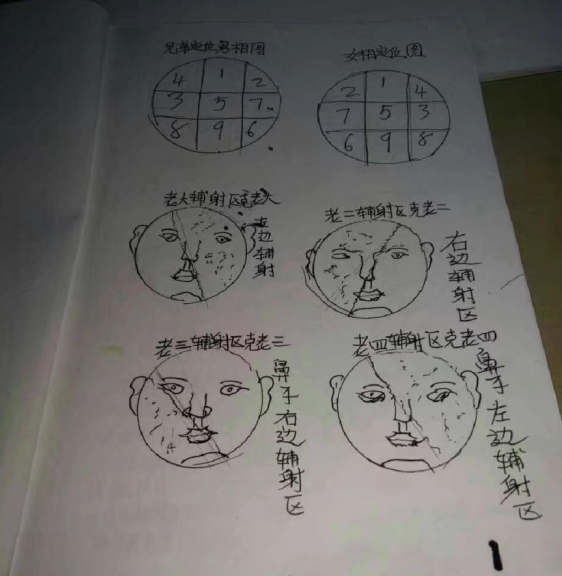 兄弟定位男相图
女相定位图
4 1 2
3 5 7
8 9 6
2 1 4
7 5 3
6 9 8
老大辅射区克老大
左边辅射
老二辅射区克老二
右边辅射区
老三辅射区克老三
鼻子右边辅射区
老四辅射区克老四
鼻子左边辅射区
1